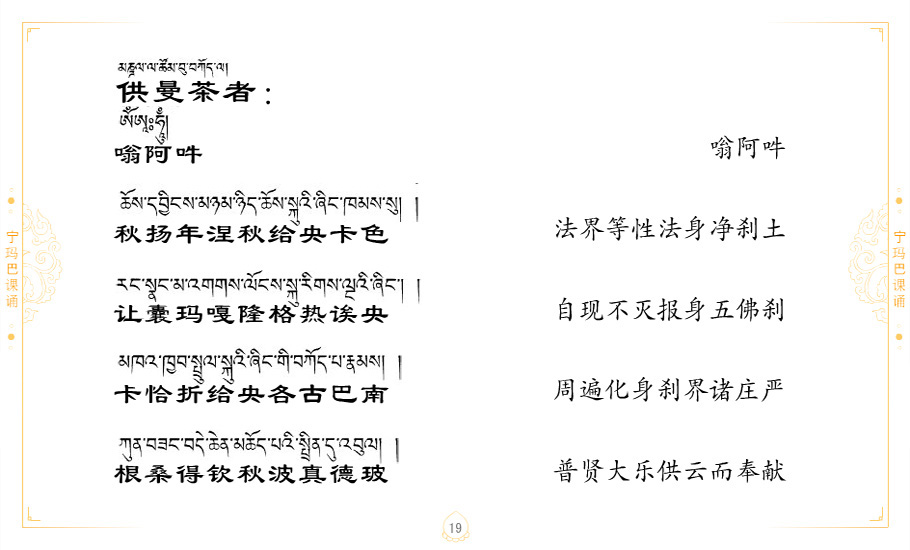 མཎྜལ་ལ་ཚོམ་བུ་བཀོད་ལ།
供曼茶者：
ཨོཾ་ཨཱཿཧཱུྂ།
嗡阿吽
嗡阿吽
ཆོས་དབྱིངས་མཉམ་ཉིད་ཆོས་སྐུའི་ཞིང་ཁམས་སུ། །
秋扬年涅秋给央卡色
法界等性法身净刹土
རང་སྣང་མ་འགགས་ལོངས་སྐུ་རིགས་ལྔའི་ཞིང་། །
让囊玛嘎隆格热诶央
自现不灭报身五佛刹
མཁའ་ཁྱབ་སྤྲུལ་སྐུའི་ཞིང་གི་བཀོད་པ་རྣམས། །
卡恰折给央各古巴南
周遍化身刹界诸庄严
ཀུན་བཟང་བདེ་ཆེན་མཆོད་པའི་སྤྲིན་དུ་འབུལ། །
根桑得钦秋波真德玻
普贤大乐供云而奉献
宁玛巴课诵
宁玛巴课诵
19